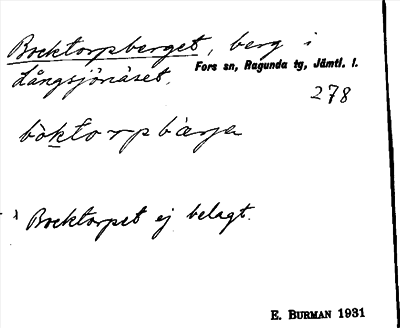 Bocktorpberget, berg i
Långsjönäset.
Fors sn, Ragunda tg, Jämtl. l.
278
bòktorpbàrja
Bocktorpet ej belagt.
E. BURMAN 1931